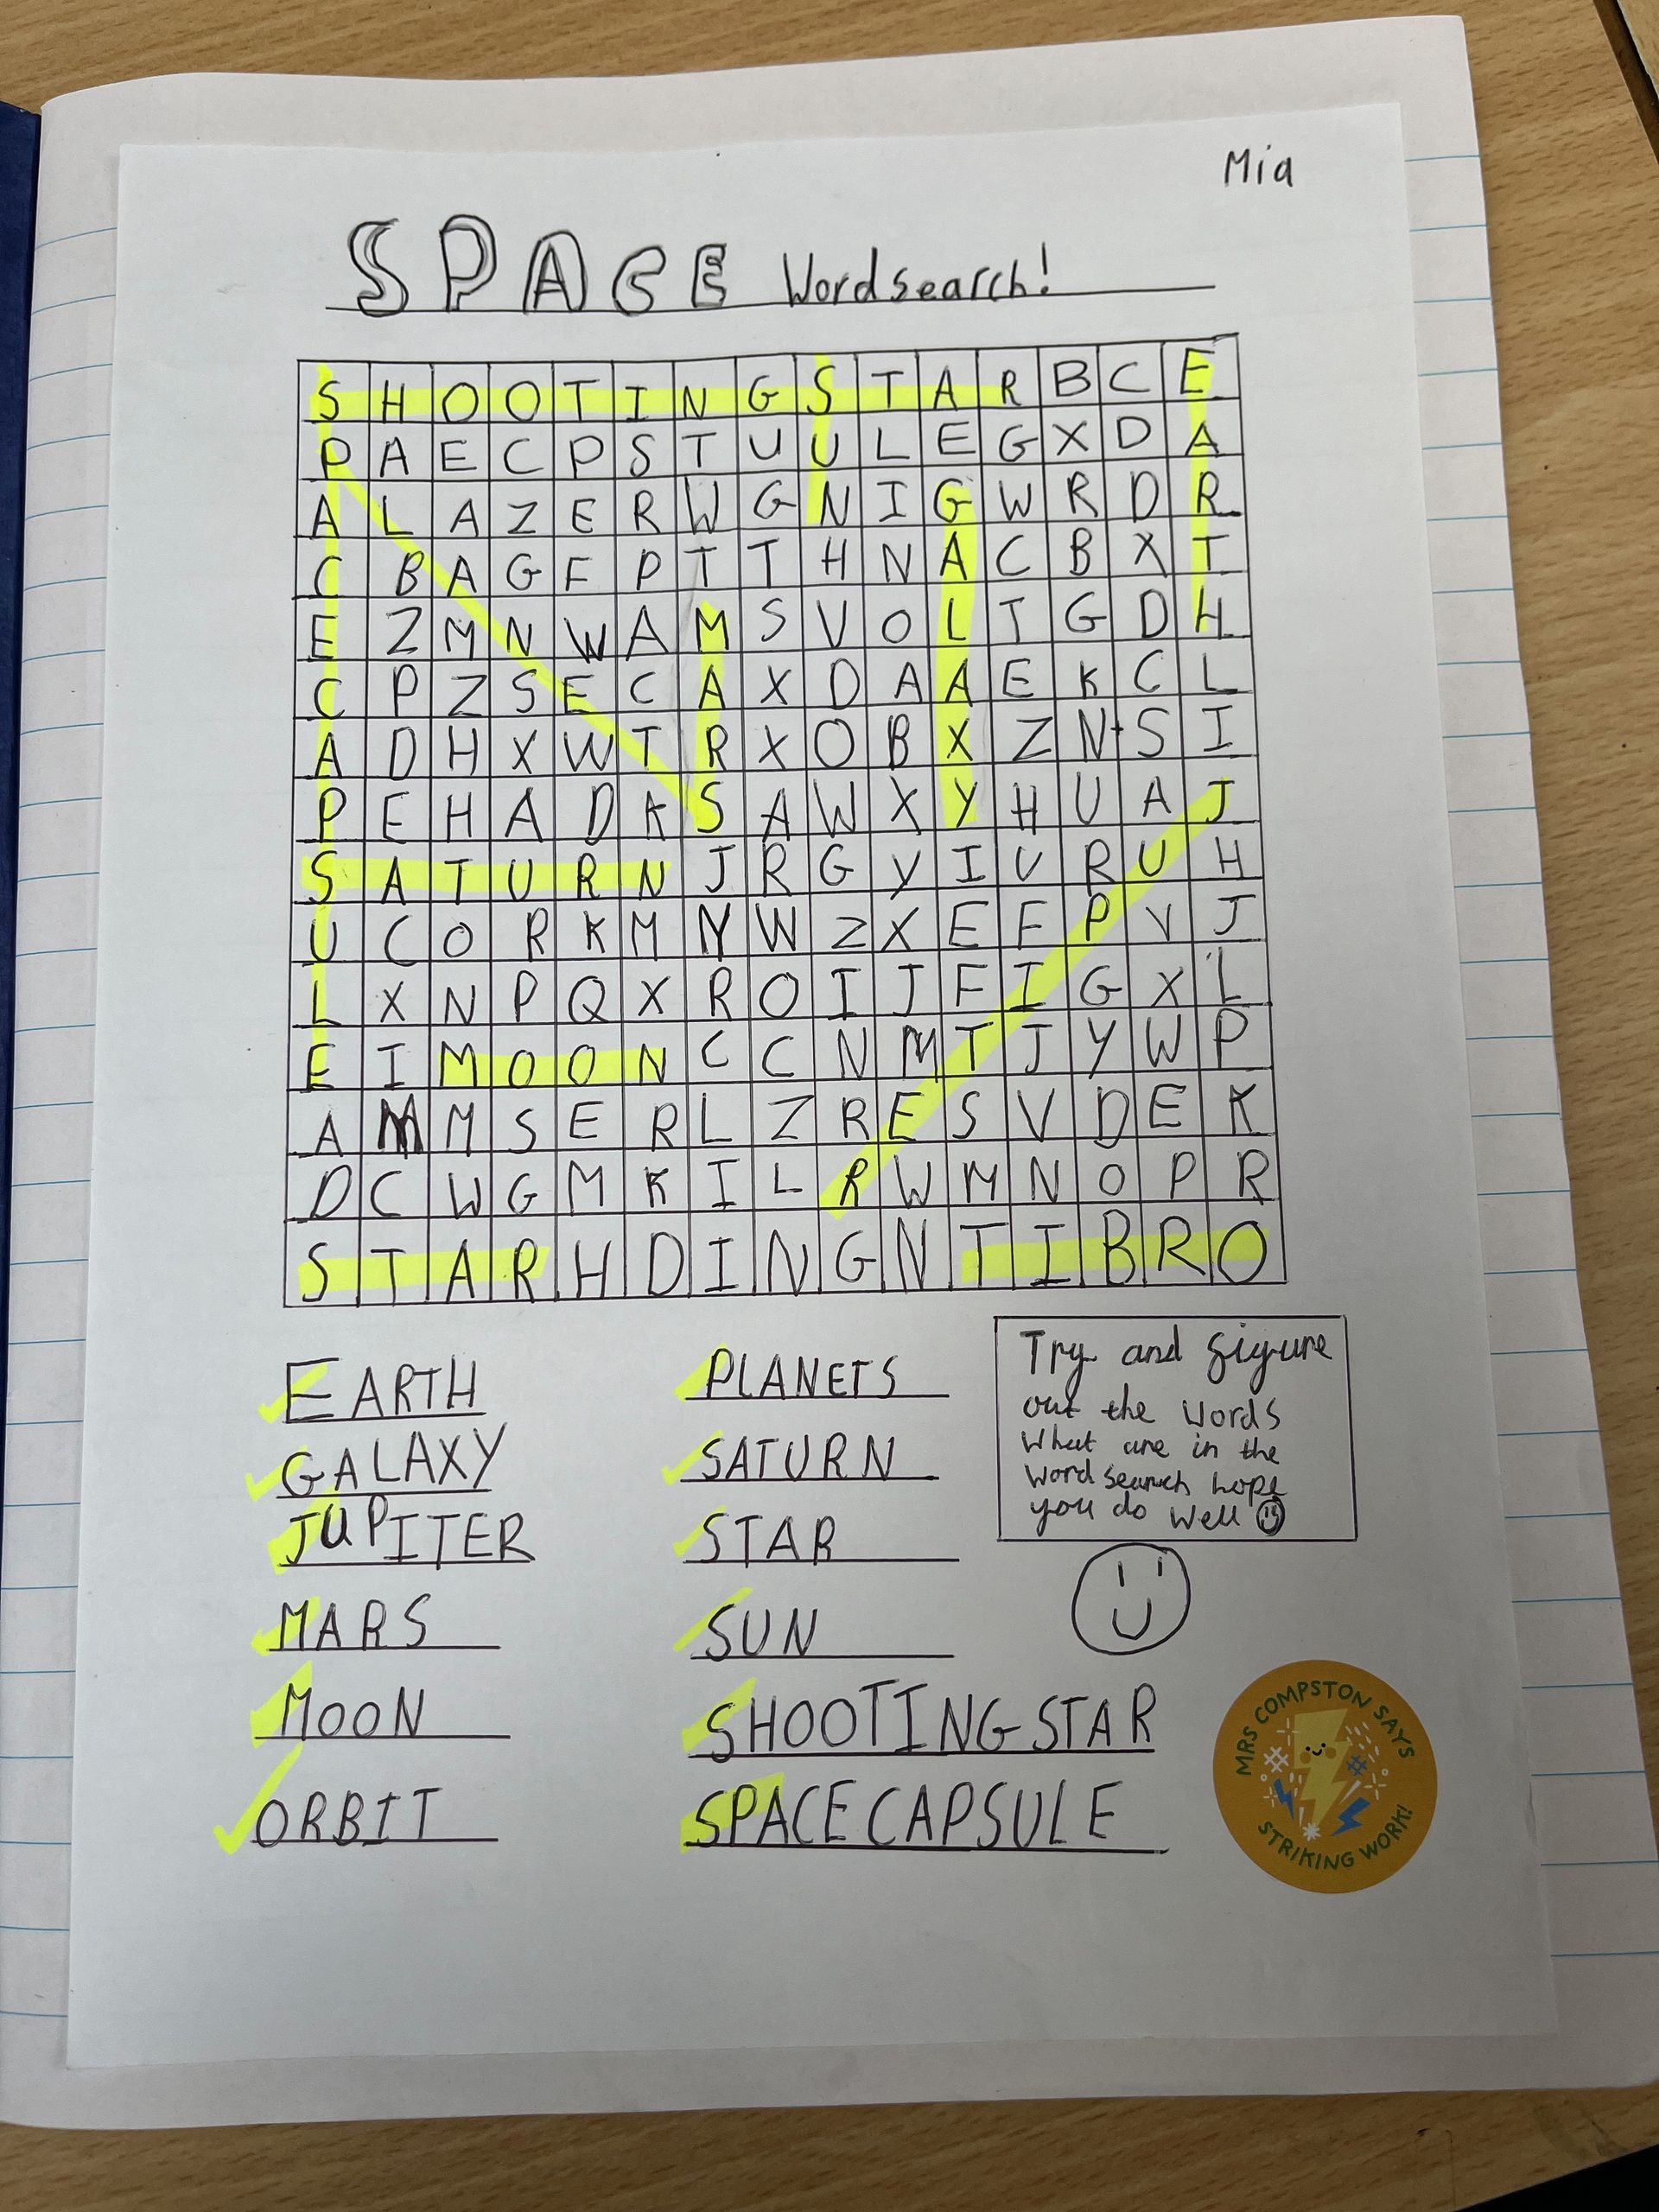 Mia
SPACE Wordsearch!
S H O O T I N G S T A R B C E
P A E C P S T U U L E G X D A
A L A Z E R W G N I G W R D R
C B A G F P T T H N A C B X T
E Z M N W A M S V O L T G D H
C P Z S E C A X D A A E K C L
A D H X W T R X O B X Z N S I
P E H A D K S A W X Y H U A J
S A T U R N J R G Y I U R U H
U C O R K M N W Z X E F P V J
L X N P Q X R O I J F I G X L
E I M O O N C C N M T J Y W P
A M M S E R L Z R E S V D E K
D C W G M K I L R W M N O P R
S T A R H D I N G N T I B R O
EARTH
GALAXY
JUPITER
MARS
MOON
ORBIT
PLANETS
SATURN
STAR
SUN
SHOOTING STAR
SPACE CAPSULE
Try and figure
out the words
what are in the
wordsearch hope
you do well
MRS COMPSTON SAYS
STRIKING WORK!